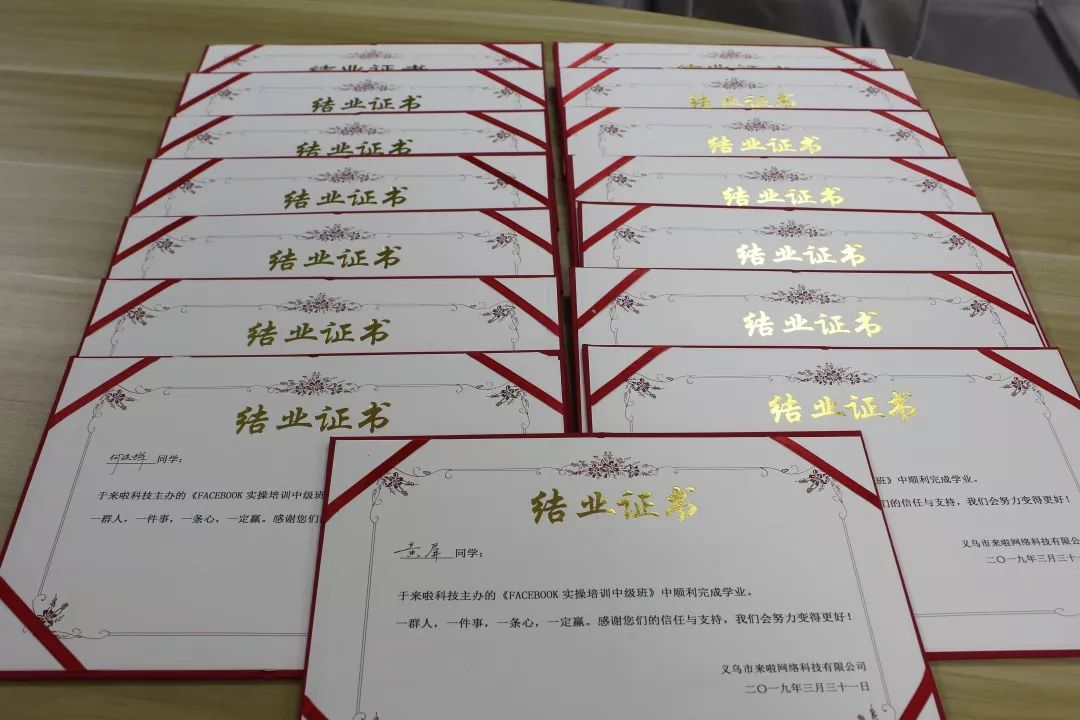 结业证书
结业证书
结业证书
结业证书
结业证书
结业证书
结业证书
结业证书
结业证书
结业证书
结业证书
结业证书
结业证书
结业证书
同学：
于来啦科技主办的《FACEBOOK 实操培训中级班》
一群人，一件事，一条心，一定赢。感谢您们
班》中顺利完成学业。
们的信任与支持，我们会努力变得更好！
义乌市来啦网络科技有限公
二〇一九年三月三十一
结业证书
黄屏 同学：
于来啦科技主办的《FACEBOOK 实操培训中级班》中顺利完成学业。
一群人，一件事，一条心，一定赢。感谢您们的信任与支持，我们会努力变得更好！
义乌市来啦网络科技有限公司
二〇一九年三月三十一日